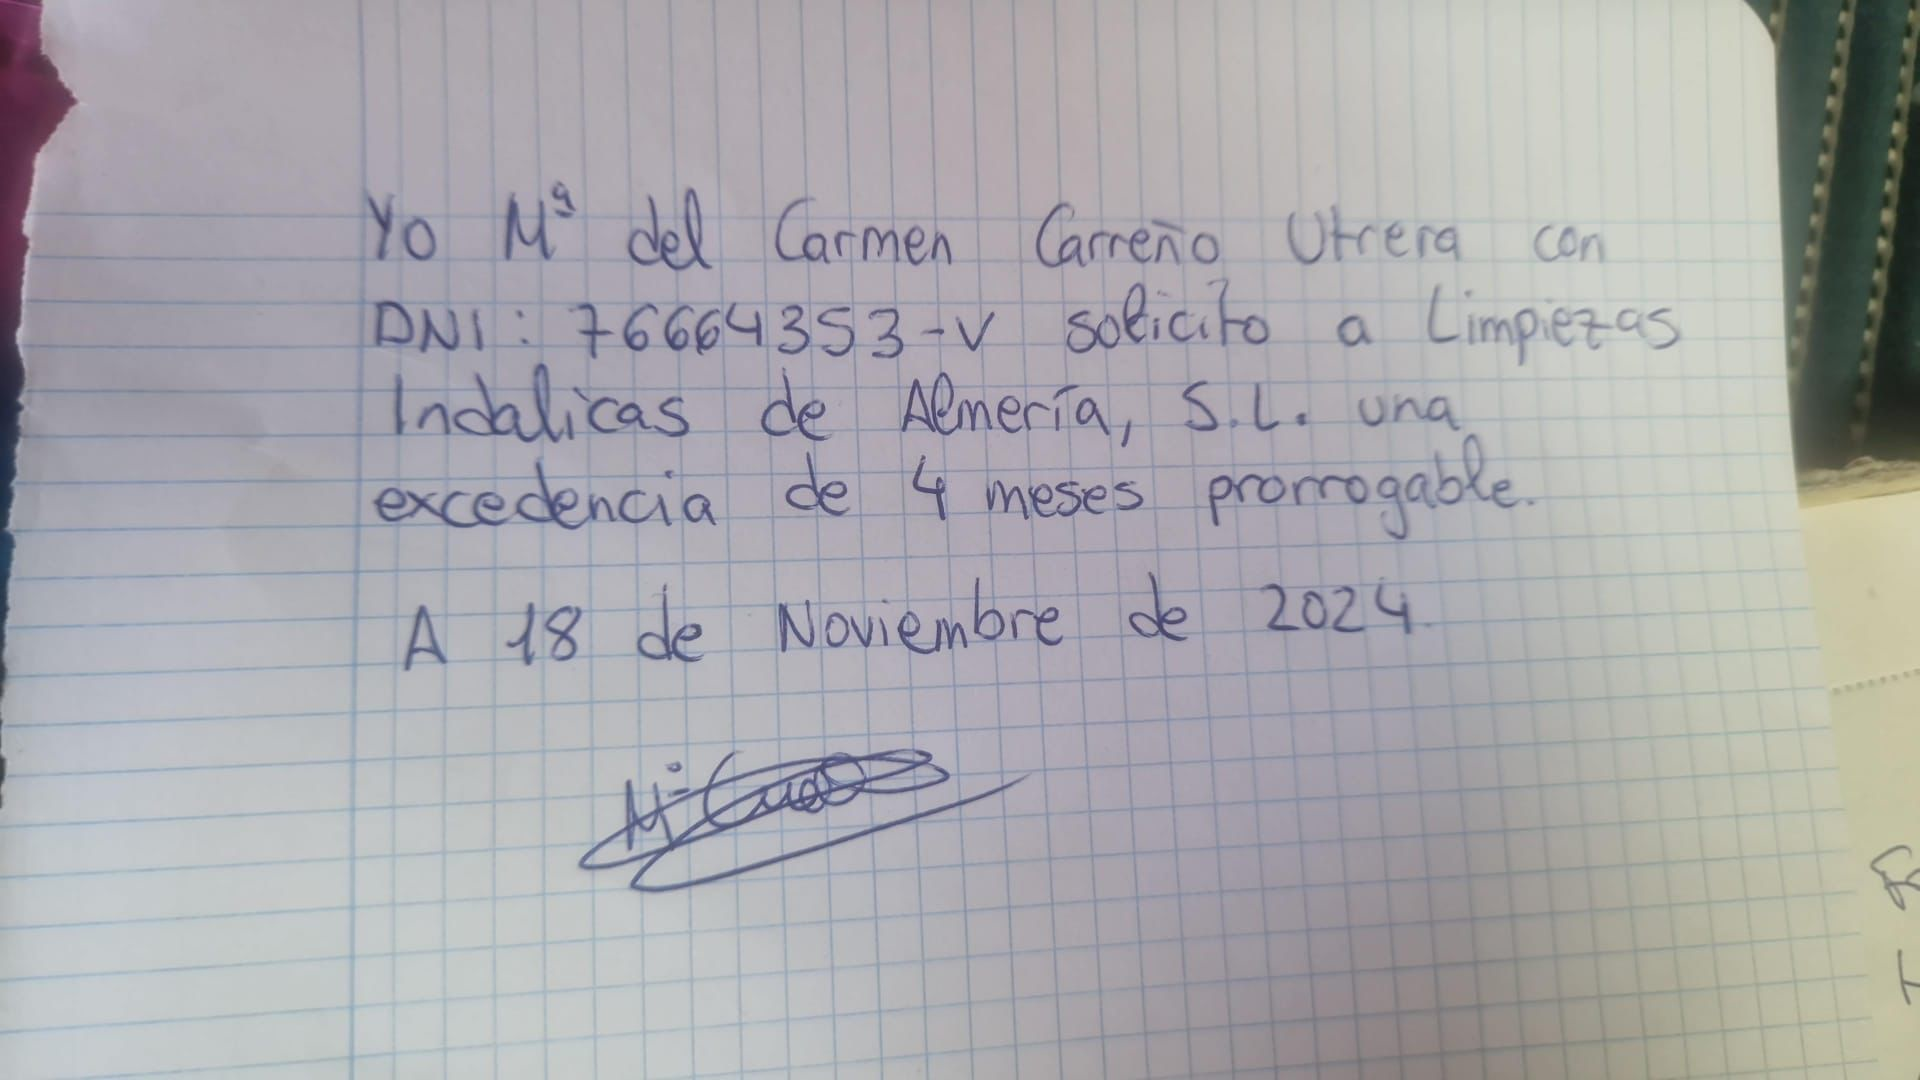 Yo Mª del Carmen Carreño Utrera con
DNI: 76664353-V solicito a Limpiezas
Indalicas de Almería, S.L. una
excedencia de 4 meses prorrogable.
A 18 de Noviembre de 2024.
Mª